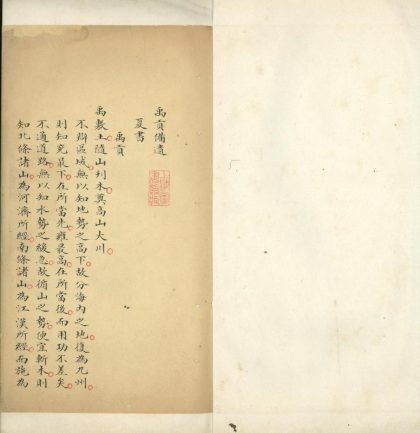 禹貢備遺
夏書
禹貢
禹敷土隨山刊木奠高山大川
不辯區域無以知地勢之高下故分海內之地復為九州
則知兗最下在所當先雍最高在所當後而用功不差矣
不通道路無以知水勢之緩急故循山之勢便宜斬木則
知北條諸山為河濟所經南條諸山為江漢所經而施為